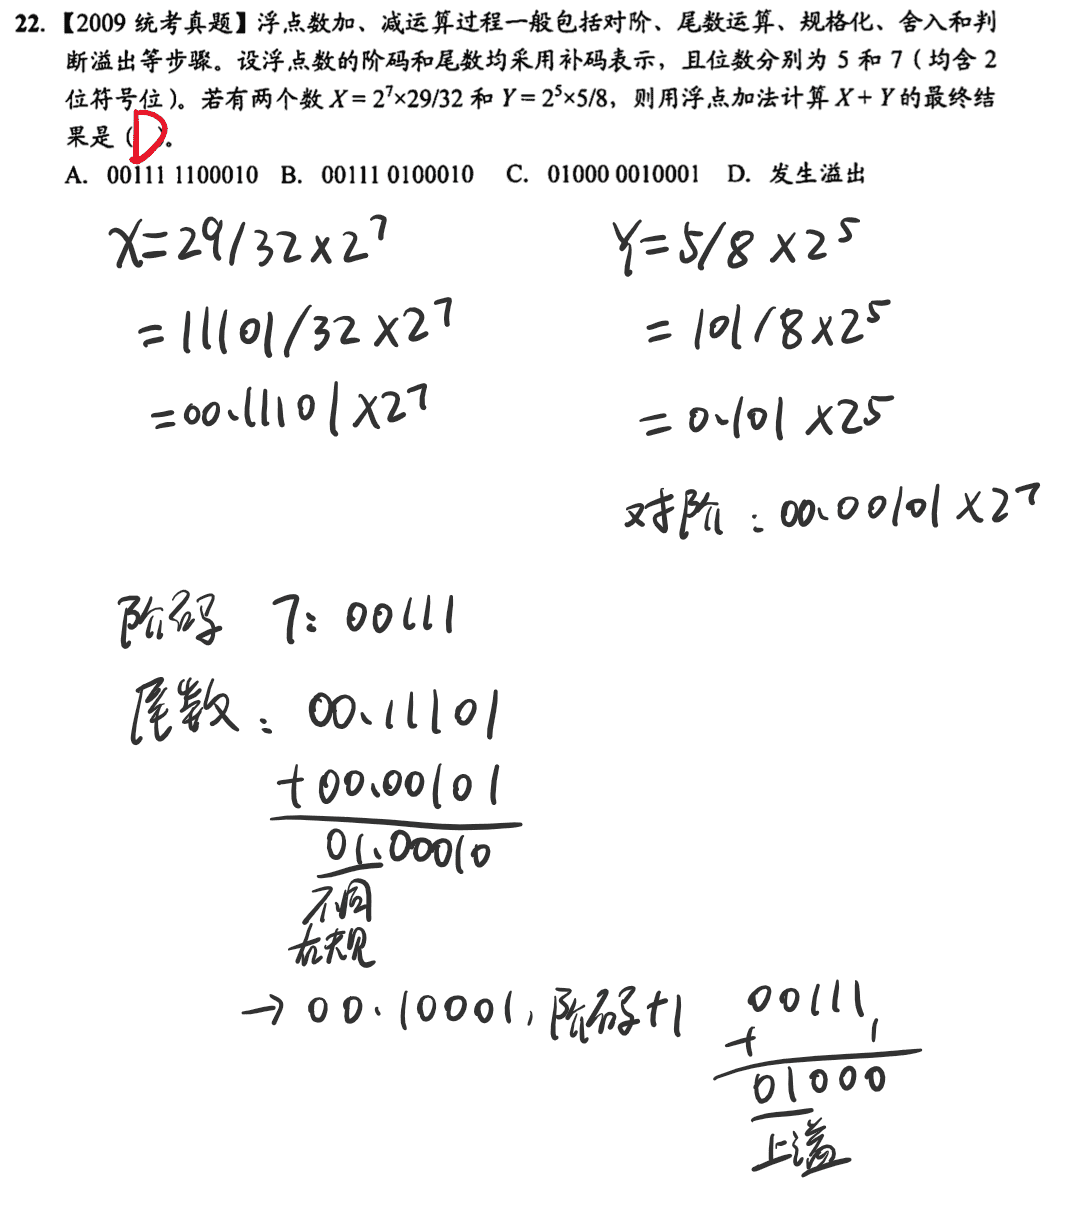 22.【2009 统考真题】浮点数加、减运算过程一般包括对阶、尾数运算、规格化、舍入和判
断溢出等步骤。设浮点数的阶码和尾数均采用补码表示，且位数分别为 5 和 7（均含 2
位符号位）。若有两个数 X = 2⁷×29/32 和 Y = 2⁵×5/8，则用浮点加法计算 X + Y 的最终结
果是（D）。
A. 00111 1100010 B. 00111 0100010 C. 01000 0010001 D. 发生溢出
X=29/32×2⁷
=11101/32×2⁷
=00.11101×2⁷
Y=5/8×2⁵
=101/8×2⁵
=0.101×2⁵
对阶：00.00101×2⁷
阶码 7：00111
尾数：00.11101
+00.00101
01.00010
不同
右规
→00.10001，阶码+1
00111
+ 1
01000
上溢